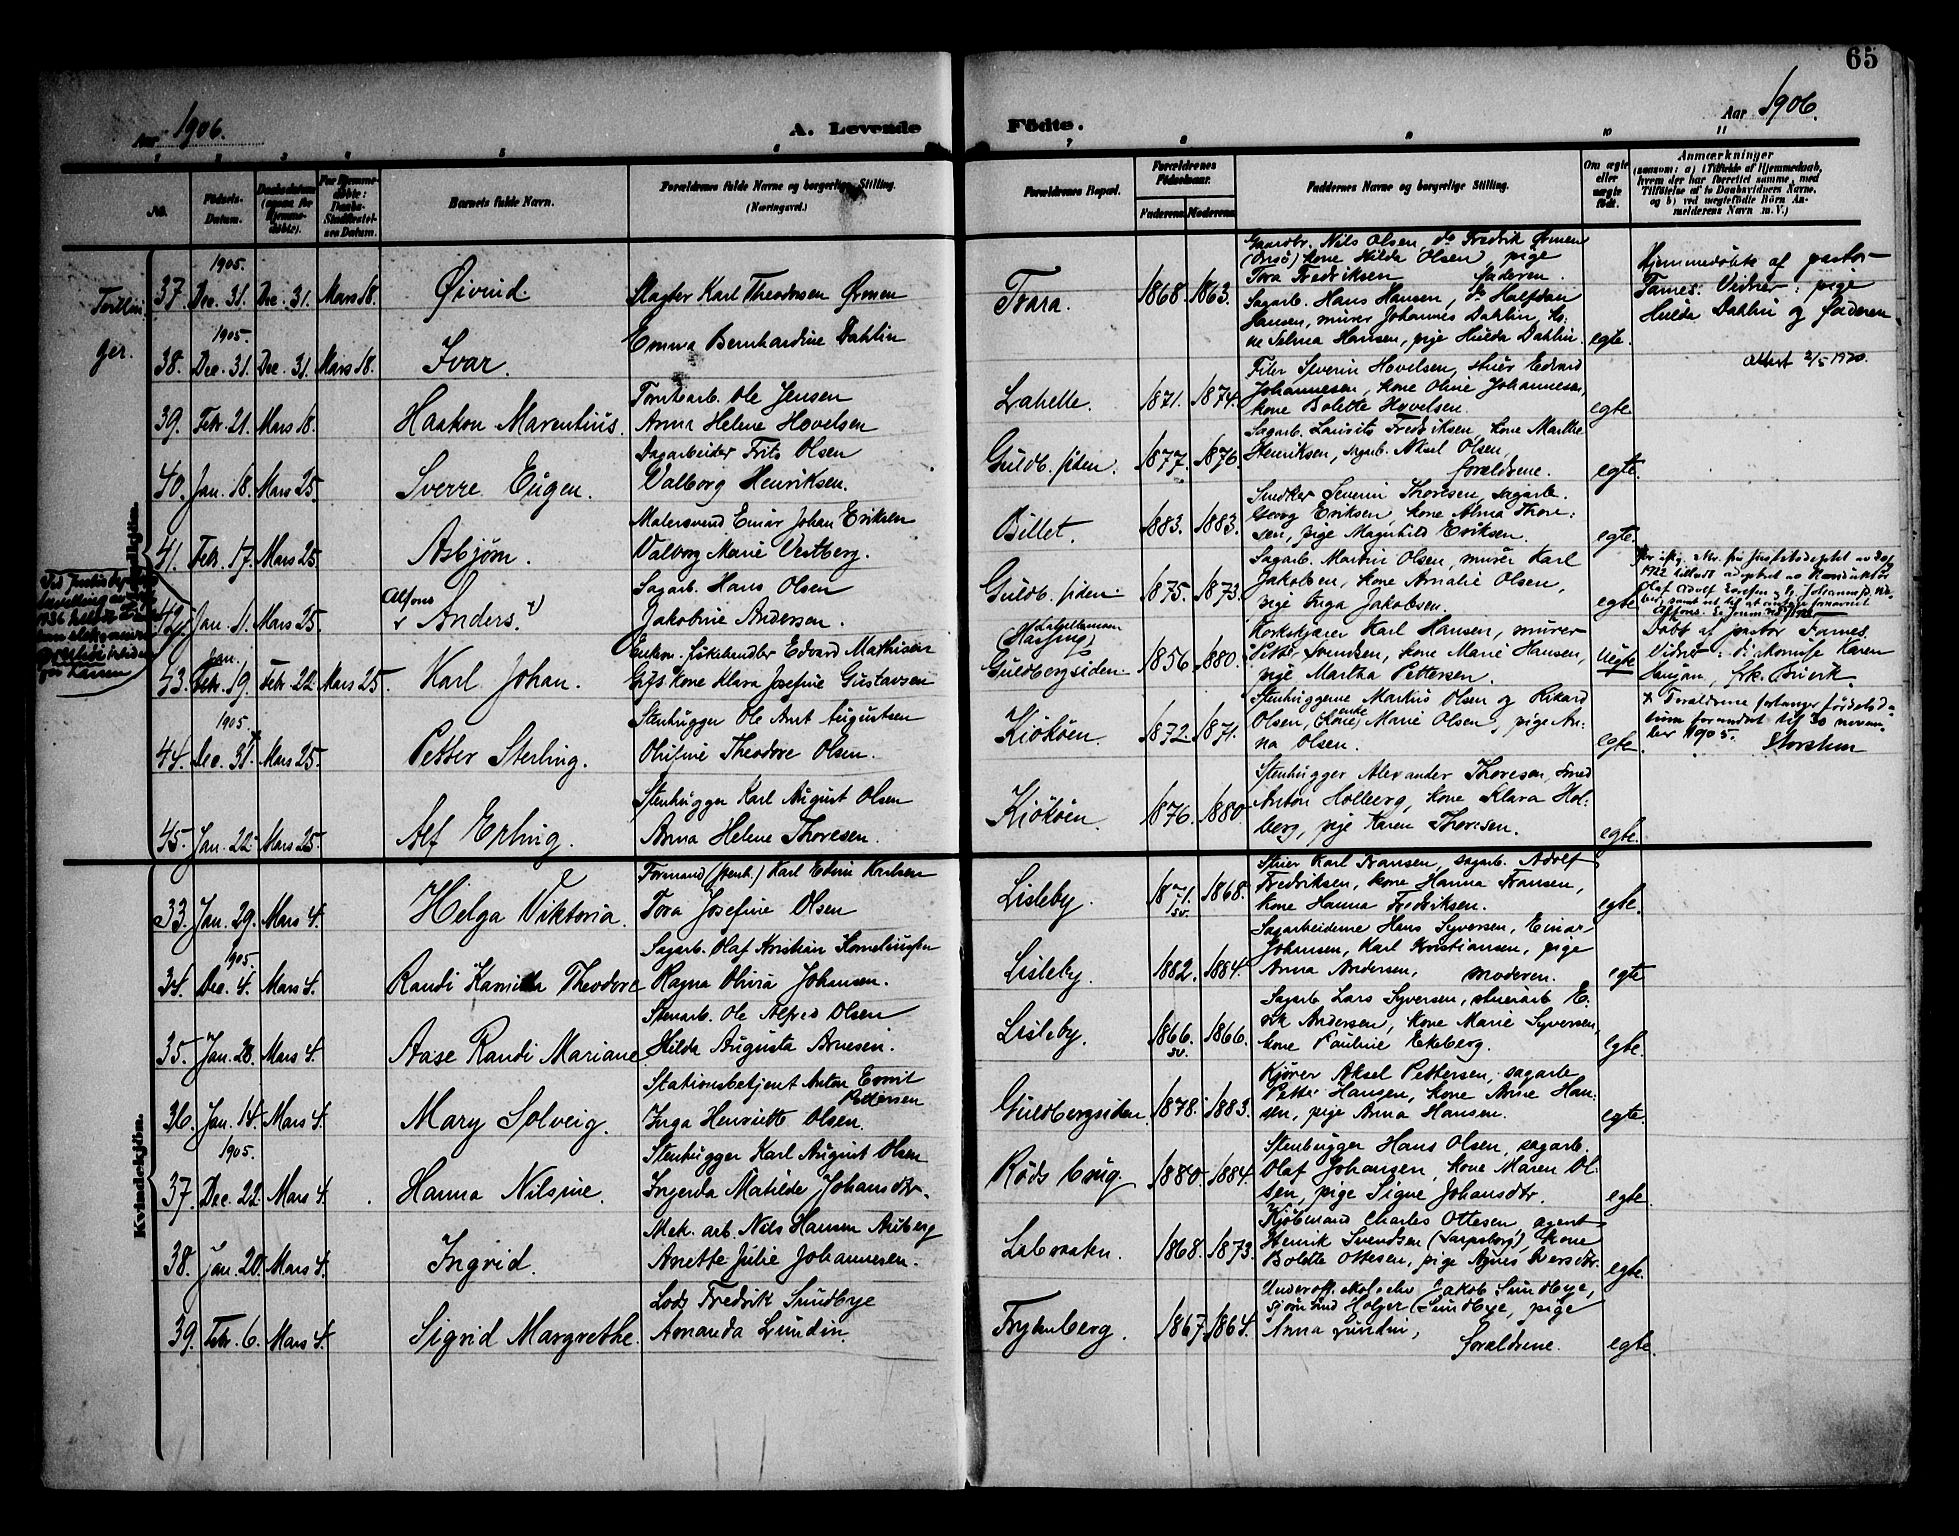 65
Aar 1906.
A. Levende
Födte.
Aar 1906.
No.
Födsels-Datum.
Daabsdatum (ogsaa for Hjemmedöbte).
Barnets fulde Navn.
Forældrenes fulde Navne og borgerlige Stilling.
(Næringsvei.)
Forældrenes Bopæl.
Forældrenes Födselsaar.
Faderens Moderens
Faddernes Navne og borgerlige Stilling.
Om ægte eller uægte födt.
Anmærkninger
(saasom: a) i Tilfælde af Hjemmedaab, hvem der har forrettet samme, med Tilföielse af to Daabsvidners Navne, og b) ved uægtefödte Börn Anmelderens Navn m. V.)
Tvillinger.
37. 1905. Dec. 31. Dec. 31. Mars 18. Øivind
Slagter Karl Theodorsen Ørmen
Tvara. 1868. 1863.
Gaardbr. Nils Olsen, do Fredrik Ørmen
(Onsö) kone Hilda Olsen, pige
Tora Fredriksen faderen.
Hjemmedöbte af pastor
Farnes. Vidner: pige
Hulda Dahlin og faderen
38. 1905. Dec. 31. Dec. 31. Mars 18. Ivar.
Emma Bernhardine Dahlin
Sagarb. Hans Hansen, do Halfdan
Hansen, murer Johannes Dahlin, ko-
ne Selma Hansen, pige Hulda Dahlin.
egte.
Attest 2/5 1920.
39. Febr. 21. Mars 18. Haakon Marentius.
Tomtearb. Ole Jensen
Anna Helene Hovelsen
Lahelle. 1871. 1874.
Filer Severin Hovelsen, stuer Edvard
Johannesen, kone Oline Johannesen,
kone Bolette Hovelsen.
egte
40. Jan. 18. Mars 25. Sverre Eugen.
Dagarbeider Frits Olsen
Valborg Henriksen.
Guldb. siden. 1877. 1876.
Sagarb. Laurits Fredriksen, kone Marthe
Henriksen, sagarb. Aksel Olsen,
forældrene.
egte.
41. Febr. 17. Mars 25. Asbjørn.
Malersvend Einar Johan Eriksen
Valborg Marie Vestberg.
Billet. 1883. 1883.
Snedker Severin Thoresen, sagarb.
Georg Eriksen, kone Alma Thore-
sen, pige Magnhild Eriksen.
egte.
42. Jan. 11. Mars 25. Alfons Anders.
Sagarb. Hans Olsen
Jakobine Andersen.
Guldb. siden. 1875. 1873.
Sagarb. Martin Olsen, murer Karl
Jakobsen, kone Amalie Olsen,
pige Inga Jakobsen.
egte
43. Jan. 19. Febr. 22. Mars 25. Karl Johan.
Enkem. fiskehandler Edvard Mathisen
Gift kone Klara Josefine Gustavsen
Guldbergsiden. 1856. 1880.
Korkskjærer Karl Hansen, murer
Petter Svendsen, kone Marie Hansen,
pige Martha Pettersen.
Uegte
Döbt af pastor Farnes.
Vidner: diakonisse Karen
44. 1905. Dec. 31. Mars 25. Petter Sterling.
Stenhugger Ole Arnt Augustsen
Olufine Theodore Olsen.
Kjököen. 1872. 1871.
Stenhuggerne Markus Olsen og Rikard
Olsen, enke (kone) Marie Olsen, pige An-
na Olsen.
egte.
Forældrene forlanger födselsda-
tum forandret til 30 novem-
ber 1905.
45. Jan. 22. Mars 25. Alf Erling.
Stenhugger Karl August Olsen
Anna Helene Thoresen.
Kjököen. 1876. 1880
Stenhugger Alexander Thoresen, smed
Anton Holberg, kone Klara Hol-
berg, pige Karen Thoresen.
egte.
Kvindekjön.
33. Jan. 29. Mars 4. Helga Viktoria.
Formand (stenh.) Karl Edvin Karlsen
Tora Josefine Olsen
Lisleby. 1871. sv. 1868.
Stuer Karl Fransen, sagarb. Adolf
Fredriksen, kone Hanna Fransen,
kone Hanna Fredriksen.
egte.
34. 1905. Dec. 4. Mars 4. Randi Kamilla Theodore
Sagarb. Olaf Kristian Kornelius​sen
Ragna Olivia Johansen.
Lisleby. 1882. 1884.
Sagarbeiderne Hans Syversen, Einar
Johansen, Karl Kristiansen, pige
Anna Andersen, moderen.
egte
35. Jan. 28. Mars 4. Aase Randi Mariane
Stenarb. Ole Alfred Olsen
Hilda Augusta Arnesen.
Lisleby. 1866. sv. 1866.
Sagarb. Lars Syversen, stuerarb E-
rik Andersen, kone Marie Syversen,
kone Pauline Ekberg.
egte.
36. Jan. 14. Mars 4. Mary Solveig.
Stationsbetjent Anton Emil
Pettersen
Inga Henriette Olsen.
Guldbergsiden. 1878. 1883.
Kjører Aksel Pettersen, sagarb
Petter Hansen, kone Anne Han-
sen, pige Anna Hansen.
egte.
37. 1905. Dec. 22. Mars 4. Hanna Nilsine.
Stenhugger Karl August Olsen
Ingerda Matilde Johansdtr.
Röds brug 1880. 1884.
Stenhugger Hans Olsen, sagarb.
Olaf Johansen, kone Maren Ol-
sen, pige Signe Johansdtr.
egte
38. Jan. 20. Mars 4. Ingrid.
Mek. arb. Nils Hansen Auberg
Anette Julie Johannesen.
1868. 1873.
Kjöbmand Charles Ottesen, agent
Henrik Svendsen (Sarpsborg), kone
Bolette Ottesen, pige Agnes Iversdtr.
egte.
39. Febr. 6. Mars 4. Sigrid Margrethe.
Lods Fredrik Sundbye
Amanda Lundin.
Trykenberg. 1867. 1864.
Underoff. Jakob Sundbye,
sjömand Holger Sundbye, pige
Anna Lundin, forældrene.
egte.